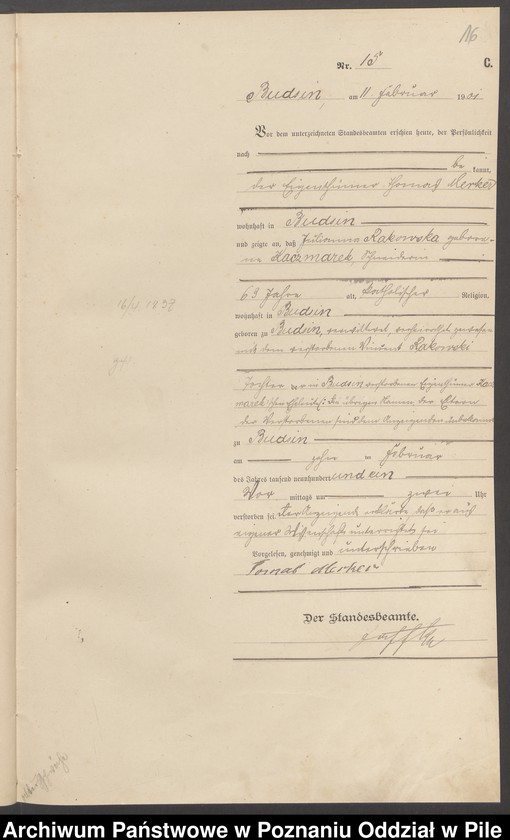 16
Nr. 15 C.
Budsin, am 11. Februar 1901
Vor dem unterzeichneten Standesbeamten erschien heute, der Persönlichkeit
nach
be kannt,
der Eigenthümer Thomas Merkes
wohnhaft in Budsin
und zeigte an, daß Julianna Rakowska gebore-
ne Kaczmarek, Schneiderin
63 Jahre alt, katholischer Religion,
wohnhaft in Budsin
geboren zu Budsin, verwittwet,
mit dem verstorbenen Vincent Rakowski
Tochter der in Budsin verstorbenen Eigenthümer Kacz
marek'schen Eheleute; die übrigen Namen der Eltern
der Verstorbenen sind dem Anzeigenden unbekannt
zu Budsin
am zehn ten Februar
des Jahres tausend neunhundert und ein
Vor mittags um zwei Uhr
verstorben sei. Der Anzeigende erklärte, daß er aus
eigener Wissenschaft unterrichtet sei
Vorgelesen, genehmigt und unterschrieben
Tomas Merkes
Der Standesbeamte.
16/4 1838
Archiwum Państwowe w Poznaniu Oddział w Pile